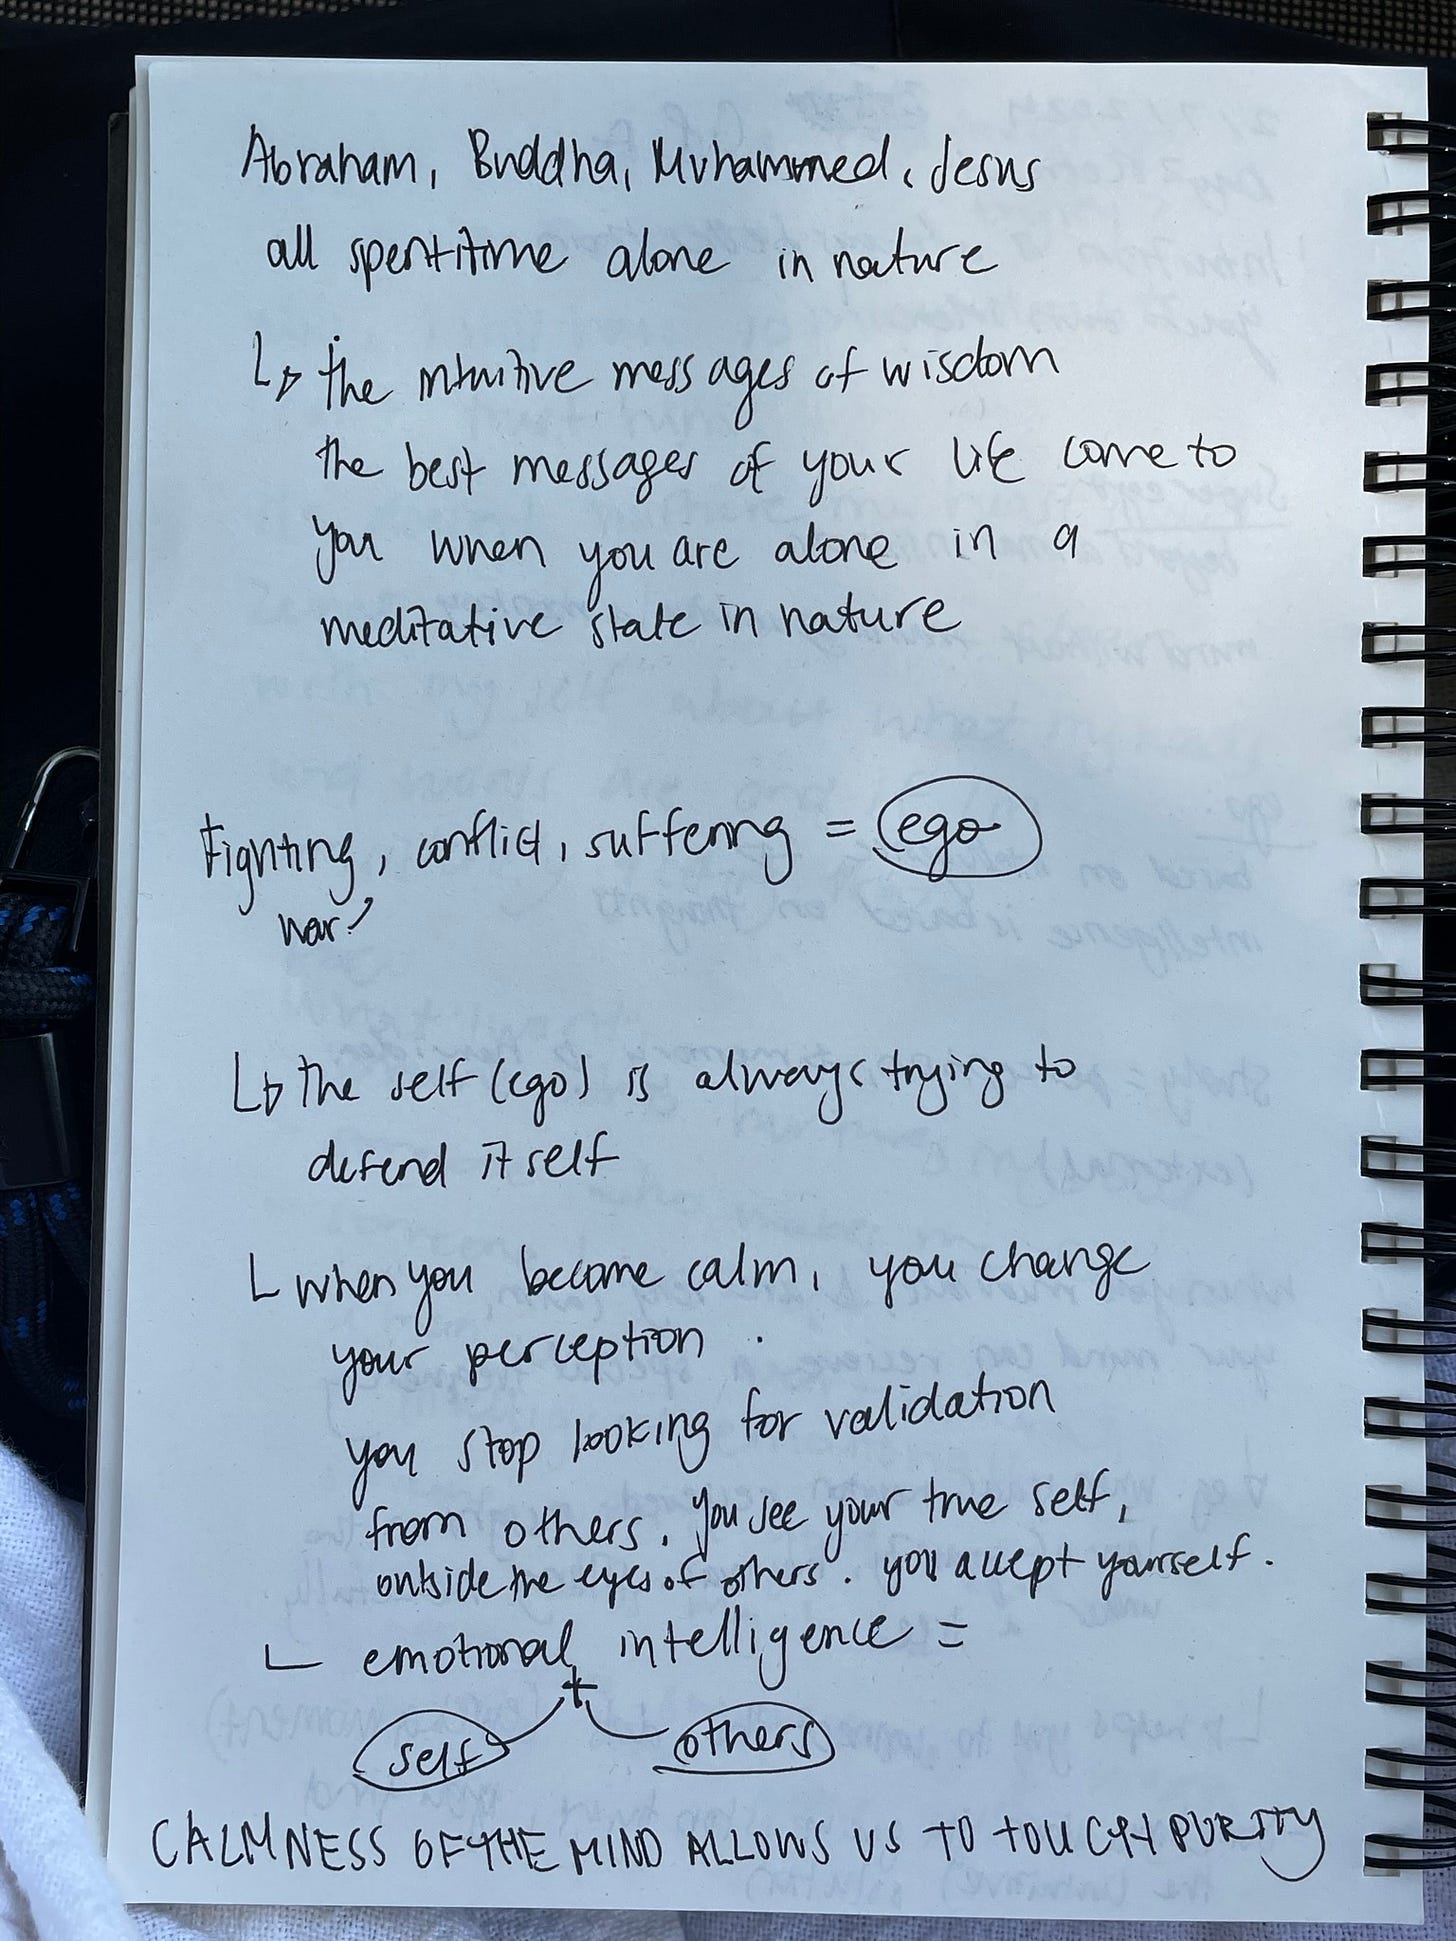 Abraham, Buddha, Muhammed, Jesus
all spent time alone in nature
↳ the intuitive messages of wisdom
the best messages of your life come to
you when you are alone in a
meditative state in nature
Fighting, conflict, suffering = ego
war
↳ the self (ego) is always trying to
defend itself
└ when you become calm, you change
your perception.
you stop looking for validation
from others. you see your true self,
outside the eyes of others. you accept yourself.
└ emotional intelligence =
+
self others
CALMNESS OF THE MIND ALLOWS US TO TOUCH PURITY